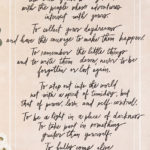 with the people whose adventures
interest with yours.
To collect your daydreams
and have the courage to make them happen.
To remember the little things
and to write them down, never to be
forgotten or lost again.
To step out into the world
not with a spirit of timidity, but
that of power, love, and self control.
To be a light in a place of darkness
To take part in something
greater than yourself.
To
come alive